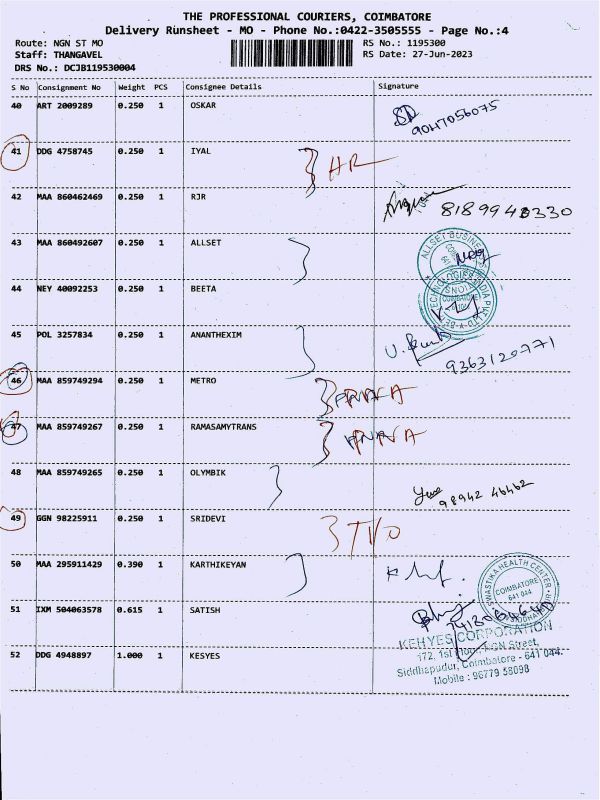 THE PROFESSIONAL COURIERS, COIMBATORE
Delivery Runsheet - MO - Phone No.:0422-3505555 - Page No.:4
Route: NGN ST MO
RS No.: 1195300
Staff: THANGAVEL
RS Date: 27-Jun-2023
DRS No.: DCJB119530004
S No Consignment No Weight PCS Consignee Details Signature
40 ART 2009289 0.250 1 OSKAR
9047056075
41 DDG 4758745 0.250 1 IYAL
HR
42 MAA 860462469 0.250 1 RJR
43 MAA 860492607 0.250 1 ALLSET
ALLSET BUSINESS
44 NEY 40092253 0.250 1 BEETA
COIMBATORE
45 POL 3257834 0.250 1 ANANTHEXIM
9363120771
46 MAA 859749294 0.250 1 METRO
47 MAA 859749267 0.250 1 RAMASAMYTRANS
48 MAA 859749265 0.250 1 OLYMBIK
98942 46462
49 GGN 98225911 0.250 1 SRIDEVI
50 MAA 295911429 0.390 1 KARTHIKEYAN
SWASTIKA HEALTH CENTER
COIMBATORE
641 044
51 IXM 504063578 0.615 1 SATISH
KEHYES CORPORATION
172, 1st Floor, NGN Street,
52 DDG 4948897 1.000 1 KESYES
Siddhapudur, Coimbatore - 641 044.
Mobile : 96779 58098